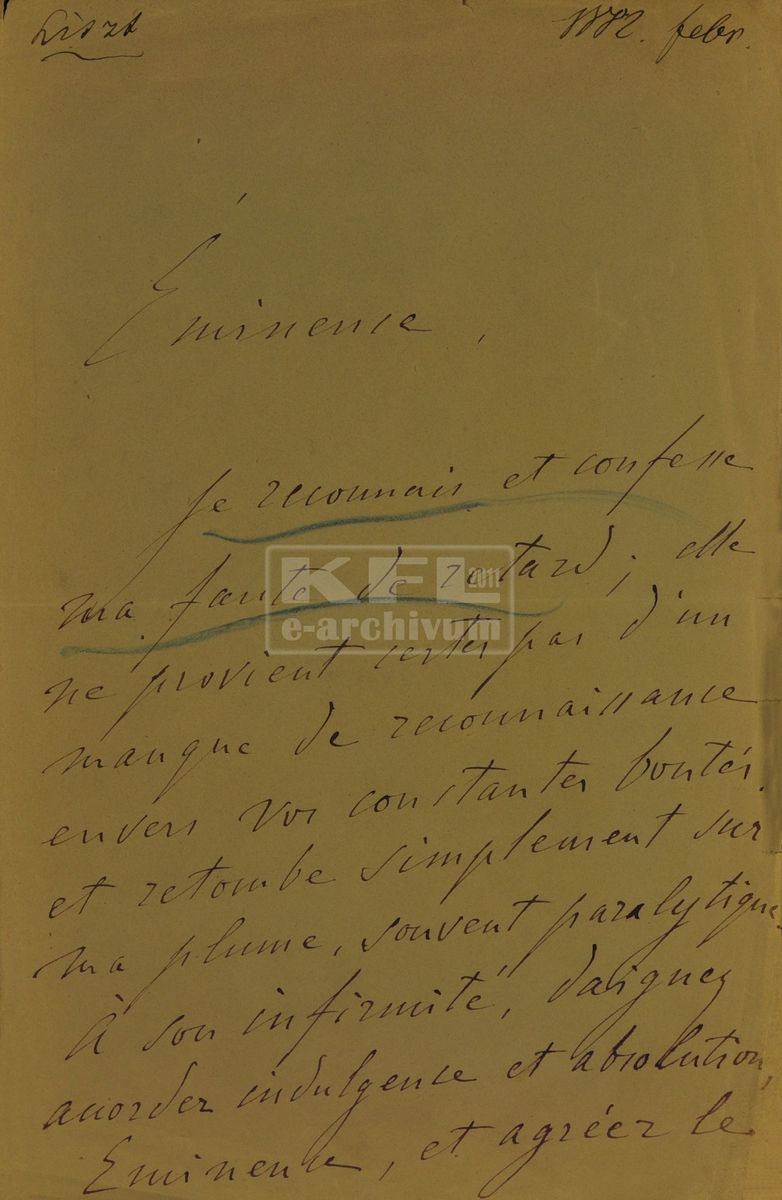 Liszt
1882. febr.
Éminence,
Je reconnais et confesse
ma faute de retard; elle
ne provient certes pas d'un
manque de reconnaissance
envers vos constantes bontés,
et retombe simplement sur
ma plume, souvent paralytique.
À son infirmité, daignez
accorder indulgence et absolution,
Eminence, et agréez le
KFL 2011
e-archivum